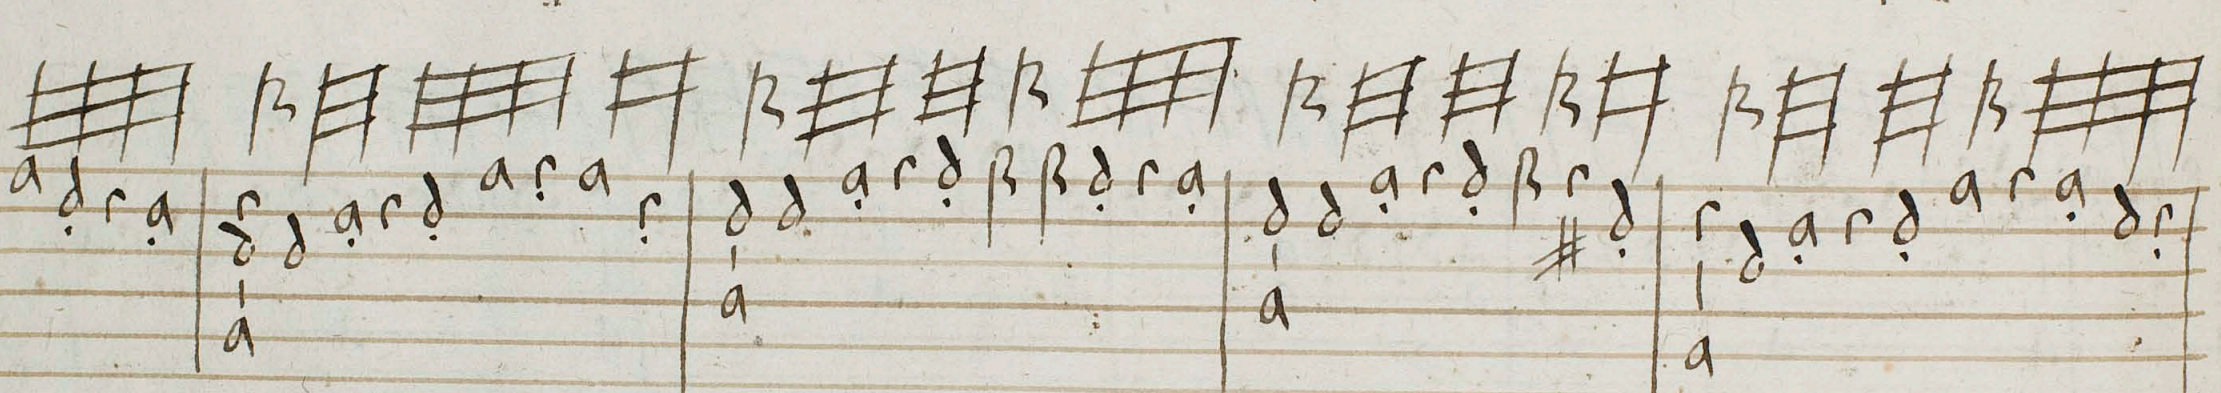 a d r a r d a r d a r a r d d a r d ß ß d r a d d a r d ß r d r d a r d a r a d r
d #
a a a a